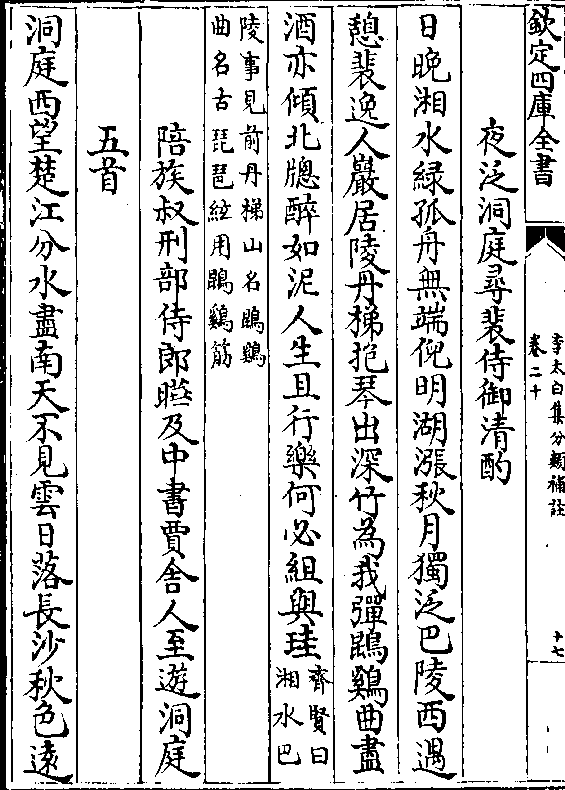 欽定四庫全書
李太白集分類補註
卷二十
十七
夜泛洞庭尋裴侍御清酌
日晚湘水綠孤舟無端倪明湖漲秋月獨泛巴陵西遇
憩裴逸人巖居陵丹梯抱琴出深竹為我彈鵾鷄曲盡
酒亦傾北牕醉如泥人生且行樂何必組與珪齊賢曰
湘水巴
陵事見前丹梯山名鵾鷄
曲名古琵琶絃用鵾鷄筋
陪族叔刑部侍郎曄及中書賈舍人至遊洞庭
五首
洞庭西望楚江分水盡南天不見雲日落長沙秋色遠